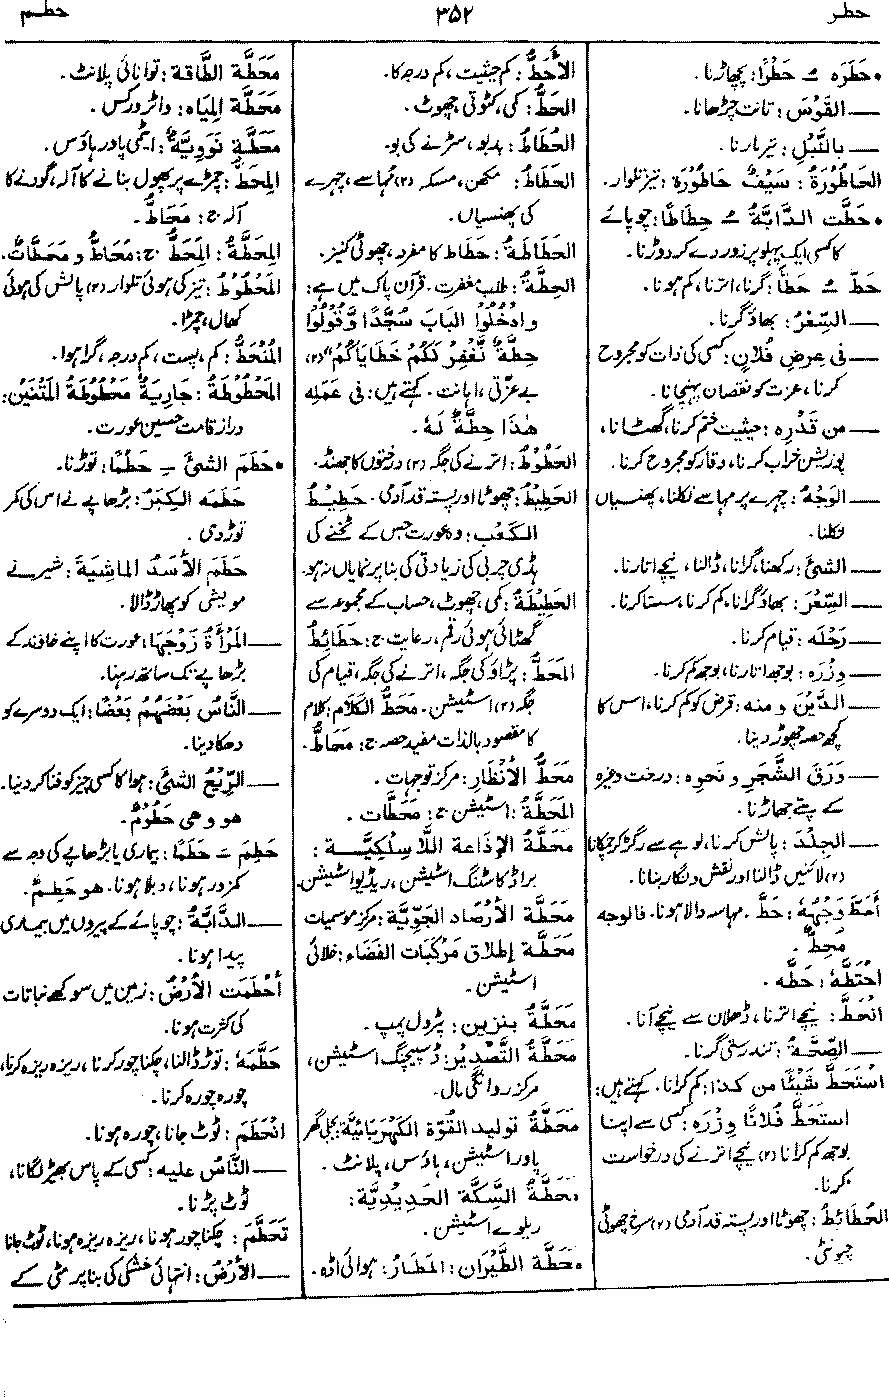 حطر ۳۵۲ حطم
• حَطَرَہ ُ حَطْرًا: پچھاڑنا۔
— القَوْسَ: تانت چڑھانا۔
— بِالنَّبْلِ: تیر مارنا۔
الحَاطُورَةُ: سَیْفٌ حَاطُورَةٌ: تیز تلوار۔
• حَطَّت الدَّابَّةُ ُ حِطَاطًا: چوپائے
کا کسی ایک پہلو پر زور دے کر دوڑنا۔
حَطَّ ُ حَطًّا: گرنا، اترنا، کم ہونا۔
— السِّعْرُ: بھاؤ گرنا۔
— فی عِرضِ فُلانٍ: کسی کی ذات کو مجروح
کرنا، عزت کو نقصان پہنچانا۔
— من قَدْرِہ: حیثیت ختم کرنا، گھٹانا،
پوزیشن خراب کرنا، وقار کو مجروح کرنا۔
— الوَجْهُ: چہرے پر مہاسے نکلنا، پھنسیاں
نکلنا۔
— الشیَٔ: رکھنا، گرانا، ڈالنا، نیچے اتارنا۔
— السِّعْرَ: بھاؤ گرانا، کم کرنا، سستا کرنا۔
— رَحْلَه: قیام کرنا۔
— وِزْرَہ: بوجھ اتارنا، بوجھ کم کرنا۔
— الدَّیْنَ و منه: قرض کو کم کرنا، اس کا
کچھ حصہ چھوڑ دینا۔
— وَرَقَ الشَّجَرِ و نحوِہ: درخت وغیرہ
کے پتے جھاڑنا۔
— الجِلْدَ: پالش کرنا، لوہے سے رگڑ کر چمکانا
(۲) لائنیں ڈالنا اور نقش و نگار بنانا۔
أَحَطَّ وَجْهُهٗ: حَطَّ۔ مہاسہ والا ہونا۔ فالوجه
مُحِطٌّ۔
احْتَطَّهٗ: حَطَّه۔
انْحَطَّ: نیچے اترنا، ڈھلان سے نیچے آنا۔
— الصِّحَّةُ: تندرستی گرنا۔
اسْتَحَطَّ شَیْئًا من کذا: کم کرانا۔ کہتے ہیں:
استَحَطَّ فُلانًا وِزْرَہ: کسی سے اپنا
بوجھ کم کرانا (۲) نیچے اترنے کی درخواست
کرنا۔
الحُطَائِطُ: چھوٹا اور پستہ قد آدمی (۲) سرخ چھوٹی
چیونٹی۔
الأَحَطُّ: کم حیثیت، کم درجہ کا۔
الحَطُّ: کمی، کٹوتی، چھوٹ۔
الحُطَاطُ: بدبو، سڑنے کی بو۔
الحَطَاطُ: مکھن، مسکہ (۲) مہاسے، چہرے
کی پھنسیاں۔
الحَطَاطَةُ: حَطَاط کا مفرد، چھوٹی کنیز۔
الحِطَّةُ: طلب مغفرت۔ قرآن پاک میں ہے:
وادْخُلُوْا البَابَ سُجَّدًا وَّقُولُوْا
حِطَّةٌ نَّغْفِرْ لَکُمْ خَطَایَاکُمْ" (۲)
بے عزتی، اہانت۔ کہتے ہیں: فی عَمَلِه
هٰذَا حِطَّةٌ لَهٗ۔
الحَطُوْطُ: اترنے کی جگہ (۲) درختوں کا جھنڈ۔
الحَطِیْطُ: چھوٹا اور پستہ قد آدمی۔ حَطِیْطُ
الکَعْبِ: وہ عورت جس کے ٹخنے کی
ہڈی چربی کی زیادتی کی بنا پر نمایاں نہ ہو۔
الحَطِیْطَةُ: کمی، چھوٹ، حساب کے مجموعہ سے
گھٹائی ہوئی رقم، رعایت ج: حَطَائِطُ
المَحَطُّ: پڑاؤ کی جگہ، اترنے کی جگہ، قیام کی
جگہ (۲) اسٹیشن۔ مَحَطُّ الکَلَامِ: کلام
کا مقصود بالذات مفید حصہ ج: مَحَاطُّ۔
مَحَطُّ الأنْظَارِ: مرکز توجہات۔
المَحَطَّةُ: اسٹیشن ج: مَحَطَّات۔
مَحَطَّةُ الإذَاعة اللَّاسِلْکِیَّة:
براڈ کاسٹنگ اسٹیشن، ریڈیو اسٹیشن۔
مَحَطَّة الأرْصَادِ الجَوِّیَّة: مرکز موسمیات
مَحَطَّة إطلاقِ مَرْکَبَاتِ الفَضَاء: خلائی
اسٹیشن۔
مَحَطَّةُ بِنْزِین: پٹرول پمپ۔
مَحَطَّةُ التَّصْدِیْر: ڈسپیچنگ اسٹیشن،
مرکز روانگی مال۔
مَحَطَّةُ تولیدِ القُوَّة الکَهْرَبَائِیَّة: بجلی گھر
پاور اسٹیشن، ہاؤس، پلانٹ۔
مَحَطَّةُ السِّکَّة الحَدِیْدِیَّة:
ریلوے اسٹیشن۔
مَحَطَّة الطَّیْرَان: المَطَارُ: ہوائی اڈہ۔
مَحَطَّة الطَّاقة: توانائی پلانٹ۔
مَحَطَّةُ المِیَاہ: واٹر ورکس۔
مَحَطَّةٌ نَوَوِیَّةٌ: ایٹمی پاور ہاؤس۔
المِحَطُّ: چمڑے پر پھول بنانے کا آلہ، گودنے کا
آلہ ج: مَحَاطُّ۔
المِحَطَّةُ: المِحَطُّ ج: مَحَاطُّ و مِحَطَّاتٌ۔
المَحْطُوْطُ: تیز کی ہوئی تلوار (۲) پالش کی ہوئی
کھال، چمڑا۔
المُنْحَطُّ: کم، پست، کم درجہ، گرا ہوا۔
المَحْطُوطَةُ: جَارِیَةٌ مَحْطُوطَةُ المَتْنَیْنِ:
دراز قامت حسین عورت۔
• حَطَمَ الشیَٔ ِ حَطْمًا: توڑنا۔
حَطَمَه الکِبَرُ: بڑھاپے نے اس کی کمر
توڑ دی۔
حَطَمَ الأسَدُ المَاشِیَةَ: شیر نے
مویشی کو پھاڑ ڈالا۔
— المَرْأةُ زَوْجَهَا: عورت کا اپنے خاوند کے
بڑھاپے تک ساتھ رہنا۔
— النَّاسُ بَعْضُهُمْ بَعْضًا: ایک دوسرے کو
دھکا دینا۔
— الرِّیْحُ الشیَٔ: ہوا کا کسی چیز کو فنا کر دینا۔
هو و هی حَطُوْمٌ۔
حَطِمَ َ حَطَمًا: بیماری یا بڑھاپے کی وجہ سے
کمزور ہونا، دبلا ہونا۔ هو حَطِمٌ۔
— الدَّابَّةُ: چوپائے کے پیروں میں بیماری
پیدا ہونا۔
أحْطَمَت الأرْضُ: زمین میں سوکھے نباتات
کی کثرت ہونا۔
حَطَّمَهٗ: توڑ ڈالنا، چکنا چور کرنا، ریزہ ریزہ کرنا،
چورہ چورہ کرنا۔
انْحَطَمَ: ٹوٹ جانا، چورہ ہونا۔
— النَّاسُ علیه: کسی کے پاس بھیڑ لگانا،
ٹوٹ پڑنا۔
تَحَطَّمَ: چکنا چور ہونا، ریزہ ریزہ ہونا، ٹوٹ جانا
— الأرْضُ: انتہائی خشکی کی بنا پر مٹی کے